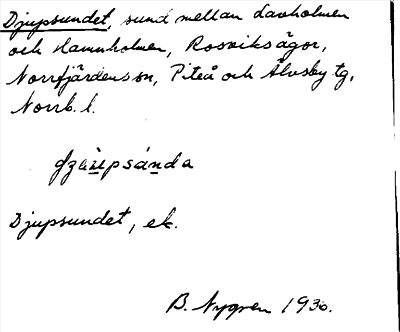 Djupsundet, sund mellan Lavholmen
och Hamnholmen, Rosviksägor,
Norrfjärdens sn, Piteå och Älvsby tg,
Norrb. l.
Djupsundet, ek.
B. Nygren 1930.